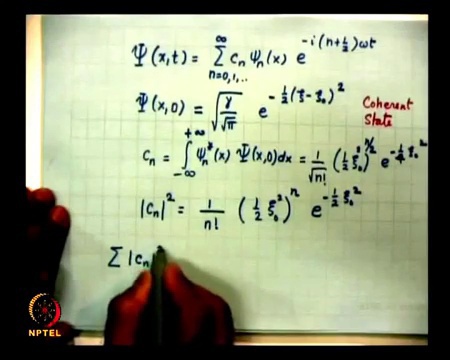 Ψ(x,t) = ∑_{n=0,1,..}^{∞} c_n ψ_n(x) e^{-i(n+½)ωt}
Ψ(x,0) = √(γ/√π) e^{-½(ξ-ξ₀)²} Coherent State
c_n = ∫_{-∞}^{+∞} ψ_n*(x) Ψ(x,0)dx = 1/√n! (½ξ₀²)^{n/2} e^{-¼ξ₀²}
|c_n|² = 1/n! (½ξ₀²)^n e^{-½ξ₀²}
∑ |c_n|²
NPTEL